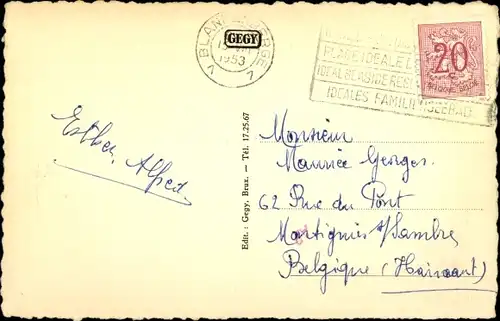 BLANKENBERGE
GEGY
1953
PLAGE IDEALE
IDEAL SEASIDE
IDEALES FAMILIENSEEBAD
20
BELGIQUE BELGIE
Esther, Alfred
Edit. : Gegy, Brux. - Tél. 17.25.67
Monsieur
Maurice Georges.
62 Rue du Pont
Montignies s/Sambre
Belgique (Hainaut)